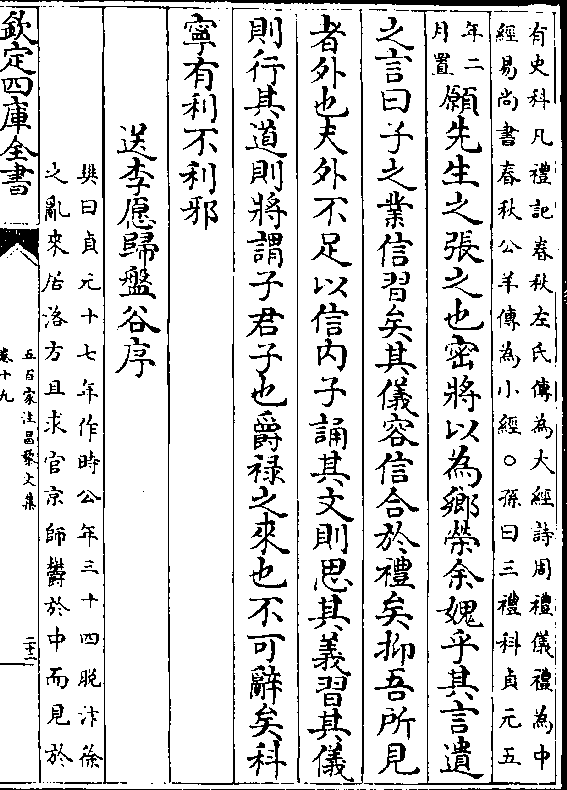 有史科凡禮記春秋左氏傳為大經詩周禮儀禮為中
經易尚書春秋公羊傳為小經○孫曰三禮科貞元五
年二
月置
願先生之張之也密將以為鄉榮余媿乎其言遺
之言曰子之業信習矣其儀容信合於禮矣抑吾所見
者外也夫外不足以信内子誦其文則思其義習其儀
則行其道則將謂子君子也爵禄之來也不可辭矣科
寧有利不利邪
送李愿歸盤谷序
樊曰貞元十七年作時公年三十四脱汴徐
之亂來居洛方且求官京師鬱於中而見於
欽定四庫全書
五百家注昌黎文集
卷十九
二十二